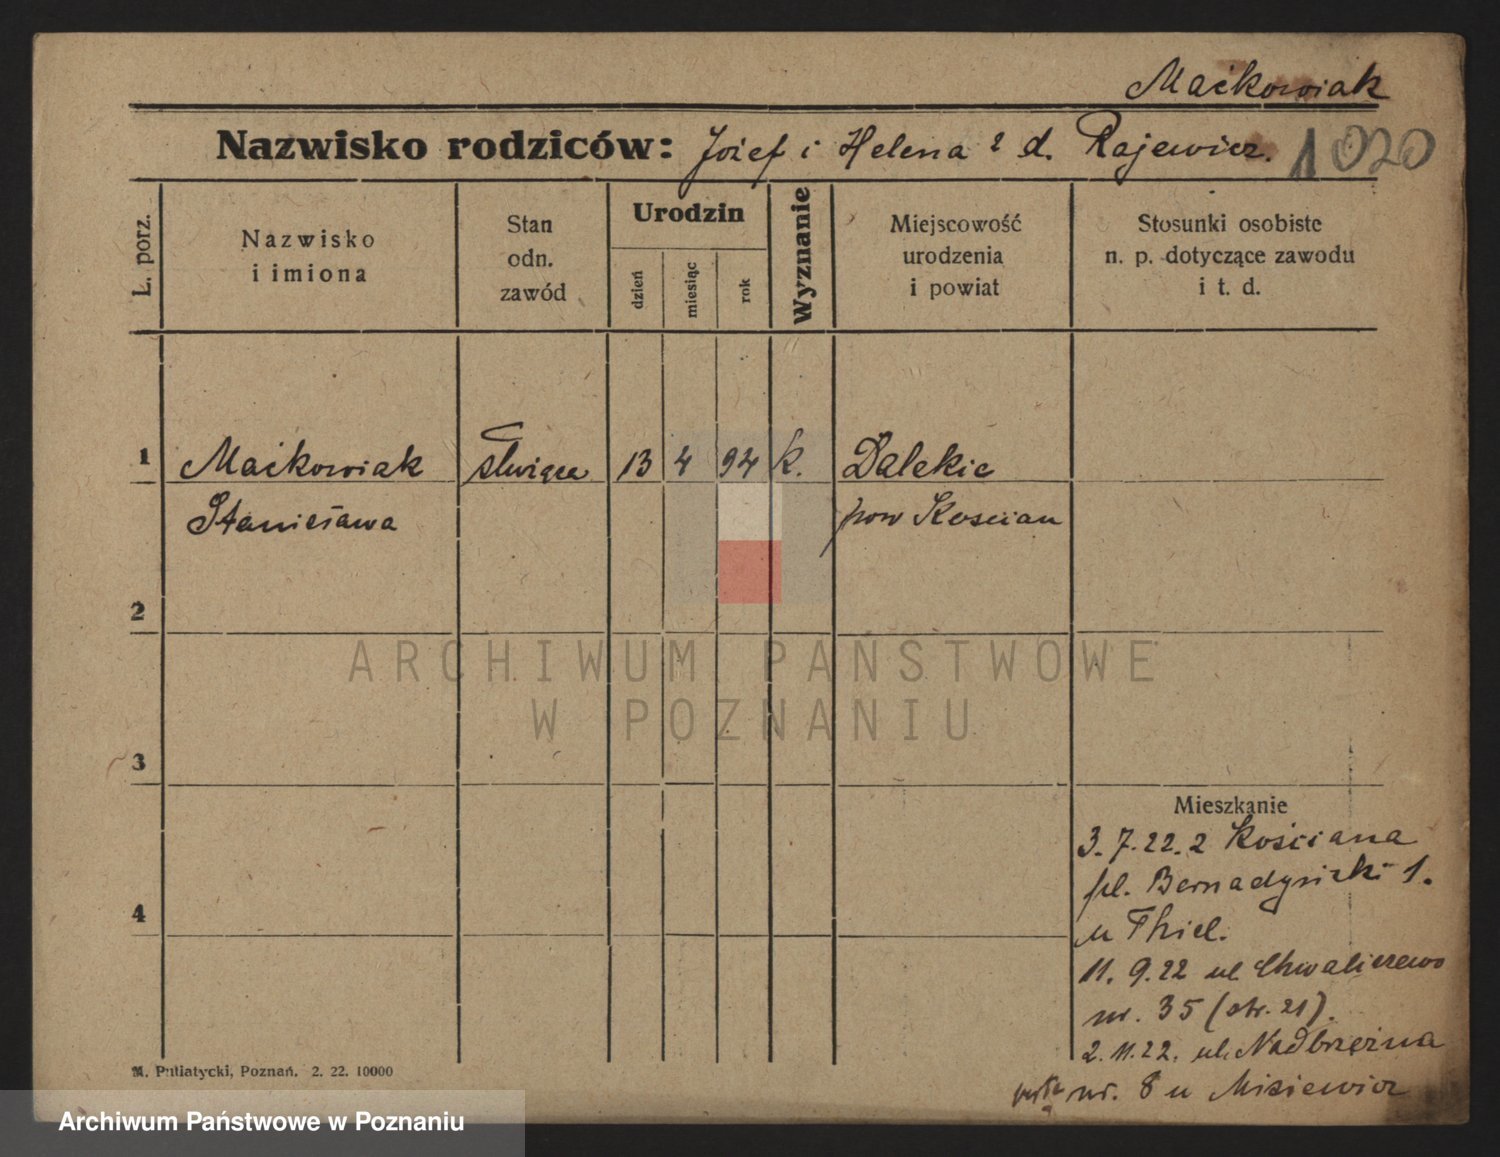 Maćkowiak
Nazwisko rodziców: Józef i Helena z d. Rajewicz.
1020
L. porz.
Nazwisko
i imiona
Stan
odn.
zawód
Urodzin
dzień
miesiąc
rok
Wyznanie
Miejscowość
urodzenia
i powiat
Stosunki osobiste
n. p. dotyczące zawodu
i t. d.
1 Maćkowiak służąca 13 4 94 k. Dalekie
Stanisława pow Kościan
2
ARCHIWUM PAŃSTWOWE
W POZNANIU
3
Mieszkanie
3.7.22. z Kościana
pl. Bernadyński 1.
4
u Thiel.
11. 9.22 ul Chwaliszewo
nr. 35 (str. 21).
2.11.22. ul. Nadbrzeżna
nr. 8 u Misiewicz
M. Putiatycki, Poznań. 2. 22. 10000
Archiwum Państwowe w Poznaniu